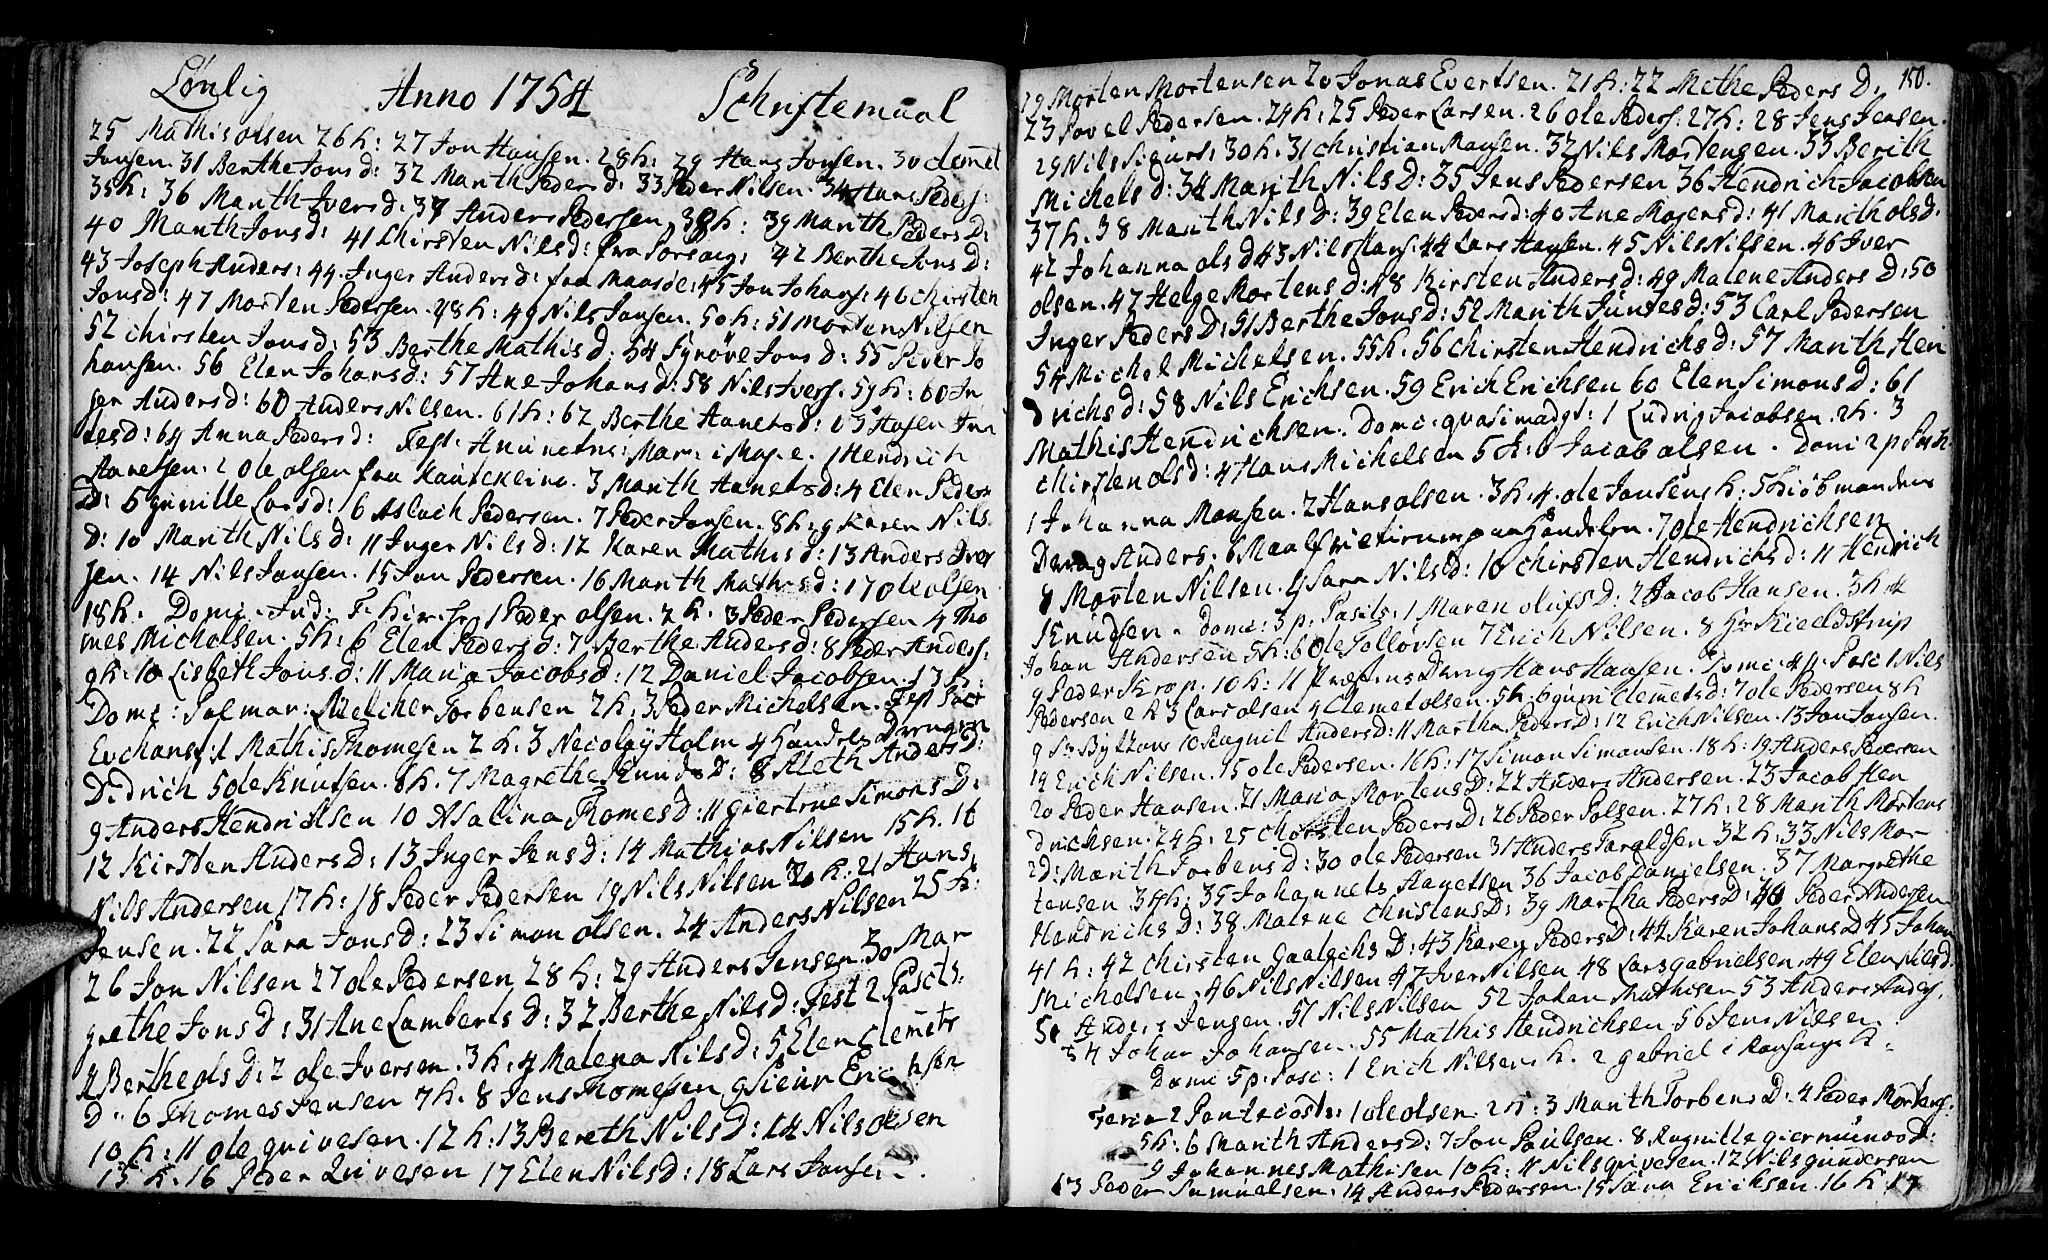 Lønlig Anno 1754 Schriftemaal
25 Mathis olsen 26 h: 27 Jon Hansen. 28 h: 29 Hans Jonsen. 30 Clemet
Jonsen. 31 Berthe Jons d: 32 Marith Peders d: 33 Peder Nilsen. 34 Hans Peders:
35 h: 36 Marith Ivers d: 37 Anders Pedersen 38 h: 39 Marith Peders D:
40 Marith Jons d: 41 Chirsten Nils d: fra Porsang: 42 Berthe Jons D:
43 Joseph Anders: 44 Inger Anders d: fra Maasøe: 45 Jon Johans: 46 Chirsten
Jons d: 47 Morten Pedersen. 48 h: 49 Nils Jonsen. 50 h: 51 Morten Nilsen
52 Chirsten Jons d: 53 Berthe Mathis d: 54 Syrøve Jons d: 55 Peder Jo
hansen. 56 Elen Johans d: 57 Ane Johans d: 58 Nils Ivers. 59 h: 60 In
ger Anders d: 60 Anders Nilsen. 61 h: 62 Berthe Hanets d: 63
tes d: 64 Anna Peders d: Fest: Mar: 1 Hendrich
2 ole olsen fra Kautokeino. 3 Marith d: 4 Elen Peders
D: 5 gunille Lars d: 6 Aslach Pedersen. 7 Peder Jonsen. 8 h: 9 Karen Nils
D: 10 Marith Nils d: 11 Inger Nils d: 12 Karen Mathis d: 13 Anders Iver
sen. 14 Nils Jonsen. 15 Jon Pedersen. 16 Marith Mathis d: 17 ole olsen
18 h. Domi: Jud: 1 Peder olsen. 2 h. 3 Peder Pedersen 4 Tho
mes Michelsen. 5 h: 6 Elen Peders d: 7 Berthe Anders d: 8 Peder Anders:
9 h: 10 Lisbeth Jons d: 11 Maria Jacobs d: 12 Daniel Jacobsen. 13 h:
Domi: Palmar: 1 Melcher Torbensen 2 h: 3 Peder Michelsen. Fest
Euchans: 1 Mathis Thomesen 2 h: 3 Necolay Holm 4 Handels Drengen
Didrich 5 ole Knutsen. 6 h. 7 Magrethe Knuds D: 8 Aleth Anders D:
9 Anders Hendrichsen 10 Asalina Thomes d: 11 giertrue Simons D:
12 Kirsten Anders D: 13 Inger Jens d: 14 Mathias Nilsen 15 h. 16
Nils Andersen 17 h: 18 Peder Pedersen 19 Nils Nilsen 20 h: 21 Hans
Jensen. 22 Sara Jons d: 23 Simon olsen. 24 Anders Nilsen 25 h:
26 Jon Nilsen 27 ole Pedersen 28 h: 29 Anders Jensen. 30 Mar
grethe Jons D: 31 Ane Lamberts D: 32 Berthe Nils d: Fest 2 Pasch:
1 Berthe ols D: 2 ole Iversen. 3 h: 4 Malena Nils d: 5 Elen Clemets
D: 6 Thomes Jensen 7 h. 8 Jens Thomesen 9 Siever
10 h: 11 ole qvivesen. 12 h: 13 Bereth Nils D: 14 Nils olsen
15 h. 16 Peder Qvivesen 17 Elen Nils d: 18 Lars Jonsen.
150.
19 Morten Mortensen 20 Jonas Evertsen. 21 h: 22 Methe Peders D:
23 Povel Pedersen. 24 h: 25 Peder Larsen. 26 ole Peders: 27 h: 28 Jens Jensen.
29 Nils Sigurs: 30 h: 31 Christian Monsen. 32 Nils Mortensen. 33 Berith
Michels d: 34 Marith Nils D: 35 Jens Pedersen 36 Hendrich Jacobsen
37 h. 38 Marith Nils d: 39 Elen Peders d: 40 Ane Mogens d: 41 Marith ols d.
42 Johanna ols d 43 Nils Hans: 44 Lars Hansen. 45 Nils Nilsen. 46 Iver
olsen. 47 Helge Mortens d: 48 Kirsten Anders d: 49 Malene Anders D: 50
Inger Peders D: 51 Berthe Jons d: 52 Marith d: 53 Carl Pedersen
54 Michel Michelsen. 55 h. 56 Chirsten Hendrichs d: 57 Marith Hen
drichs d: 58 Nils Erichsen. 59 Erich Erichsen 60 Elen Simons D: 61
Mathis Hendrichsen. Domi: quasimodgt: 1 Ludvig Jacobsen. 2 h. 3
Chirsten ols d: 4 Hans Michelsen 5 h: 6 Jacob olsen. Domi 2 p Pasch.
1 Johanna Monsen. 2 Hans olsen. 3 h. 4 ole Jonsens h: 5 Kiøbmandens
Dreng Anders. 6 paa Handelen. 7 ole Hendrichsen
8 Morten Nilsen. 9 Sara Nils d: 10 Chirsten Hendrichs d: 11 Hendrich
Knudsen. Domi: 3 p: Pasch: 1 Maren olufs D: 2 Jacob Hansen. 3 h 4
Johan Andersen 5 h: 6 ole Tollorsen 7 Erich Nilsen. 8 Hr Kieldstrup
9 Peder Krop. 10 h: 11 Dreng Hans Hansen. Domi: 4 p: Pasc 1 Nils
Pedersen 2 h 3 Lars olsen 4 Clemet olsen. 5 h. 6 guri Clemets d: 7 ole Pedersen 8 h
9 10 Ragnil Anders d: 11 Martha Peders D: 12 Erich Nilsen. 13 Jon Jonsen.
14 Erich Nilsen. 15 ole Pedersen. 16 h: 17 Simon Simonsen. 18 h: 19 Anders Pedersen
20 Peder Hansen. 21 Maria Mortens D: 22 Anders Andersen. 23 Jacob Hen
drichsen. 24 h: 25 Chirsten Peders D: 26 Peder Polsen. 27 h: 28 Marith Mortens
d: Marith Torbens D: 30 ole Pedersen 31 Anders Taraldsen 32 h: 33 Nils Mor
tensen 34 h: 35 Johannes Hanetsen 36 Jacob Danielsen. 37 Margrethe
Hendrichs D: 38 Malene Christens D: 39 Martha Peders D: 40 Peder Andersen
41 h: 42 Chirsten D: 43 Karen Peders D: 44 Karen Johans D 45 Johan
Michelsen. 46 Nils Nilsen 47 Iver Nilsen 48 Lars gabrielsen. 49 Elen Nils d.
50 Anders Jensen. 51 Nils Nilsen 52 Johan Mathisen 53 Anders Anders.
54 Johan Johansen. 55 Mathis Hendrichsen. 56 Jens Nilsen
Domi 5 p: Pasc: 1 Erich Nilsen h. 2 gabriel i
Feria 2 Pentecost: 1 ole olsen. 2 h: 3 Marith Torbens D: 4 Peder Mortens.
5 h: 6 Marith Anders d: 7 Jon Paulsen. 8 Ragnille D:
9 Johannes Mathisen 10 h: 11 Nils qvivesen. 12 Nils gundersen
13 Peder Samuelsen. 14 Anders Pedersen. 15 Sara Erichsen. 16 h 17